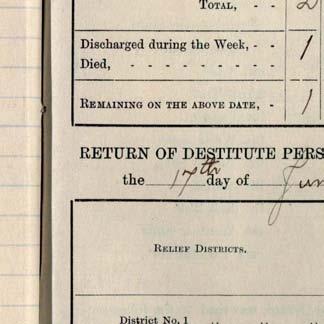 TOTAL, - - 2
Discharged during the Week, - - 1
Died, - - - - - - -
REMAINING ON THE ABOVE DATE, - 1
RETURN OF DESTITUTE PERS
the 17th day of Jun
RELIEF DISTRICTS.
District No. 1